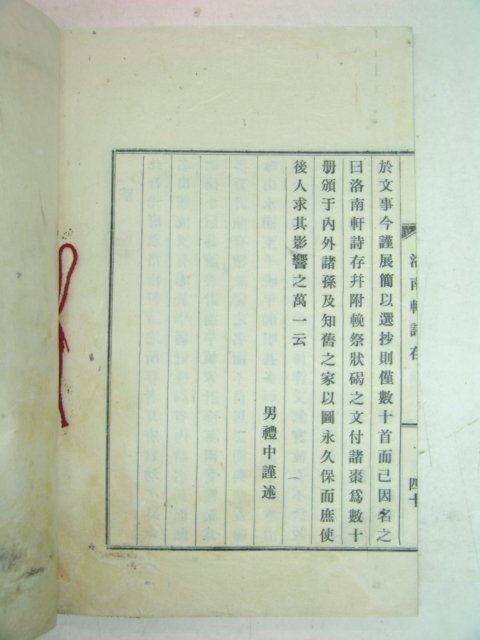 洛南軒詩存
四十
於文事今謹展簡以選抄則僅數十首而已因名之
曰洛南軒詩存幷附輓祭狀碣之文付諸棗爲數十
册頒于內外諸孫及知舊之家以圖永久保而庶使
後人求其影響之萬一云
男禮中謹述